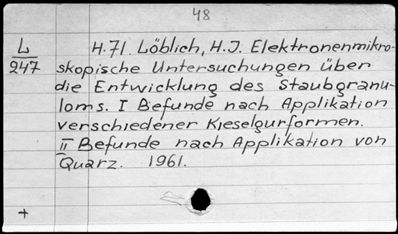 48
L
247
H.71. Löblich, H.J. Elektronenmikro-
skopische Untersuchungen über
die Entwicklung des Staubgranu-
loms. I Befunde nach Applikation
verschiedener Kieselgurformen.
II Befunde nach Applikation von
Quarz. 1961.
+